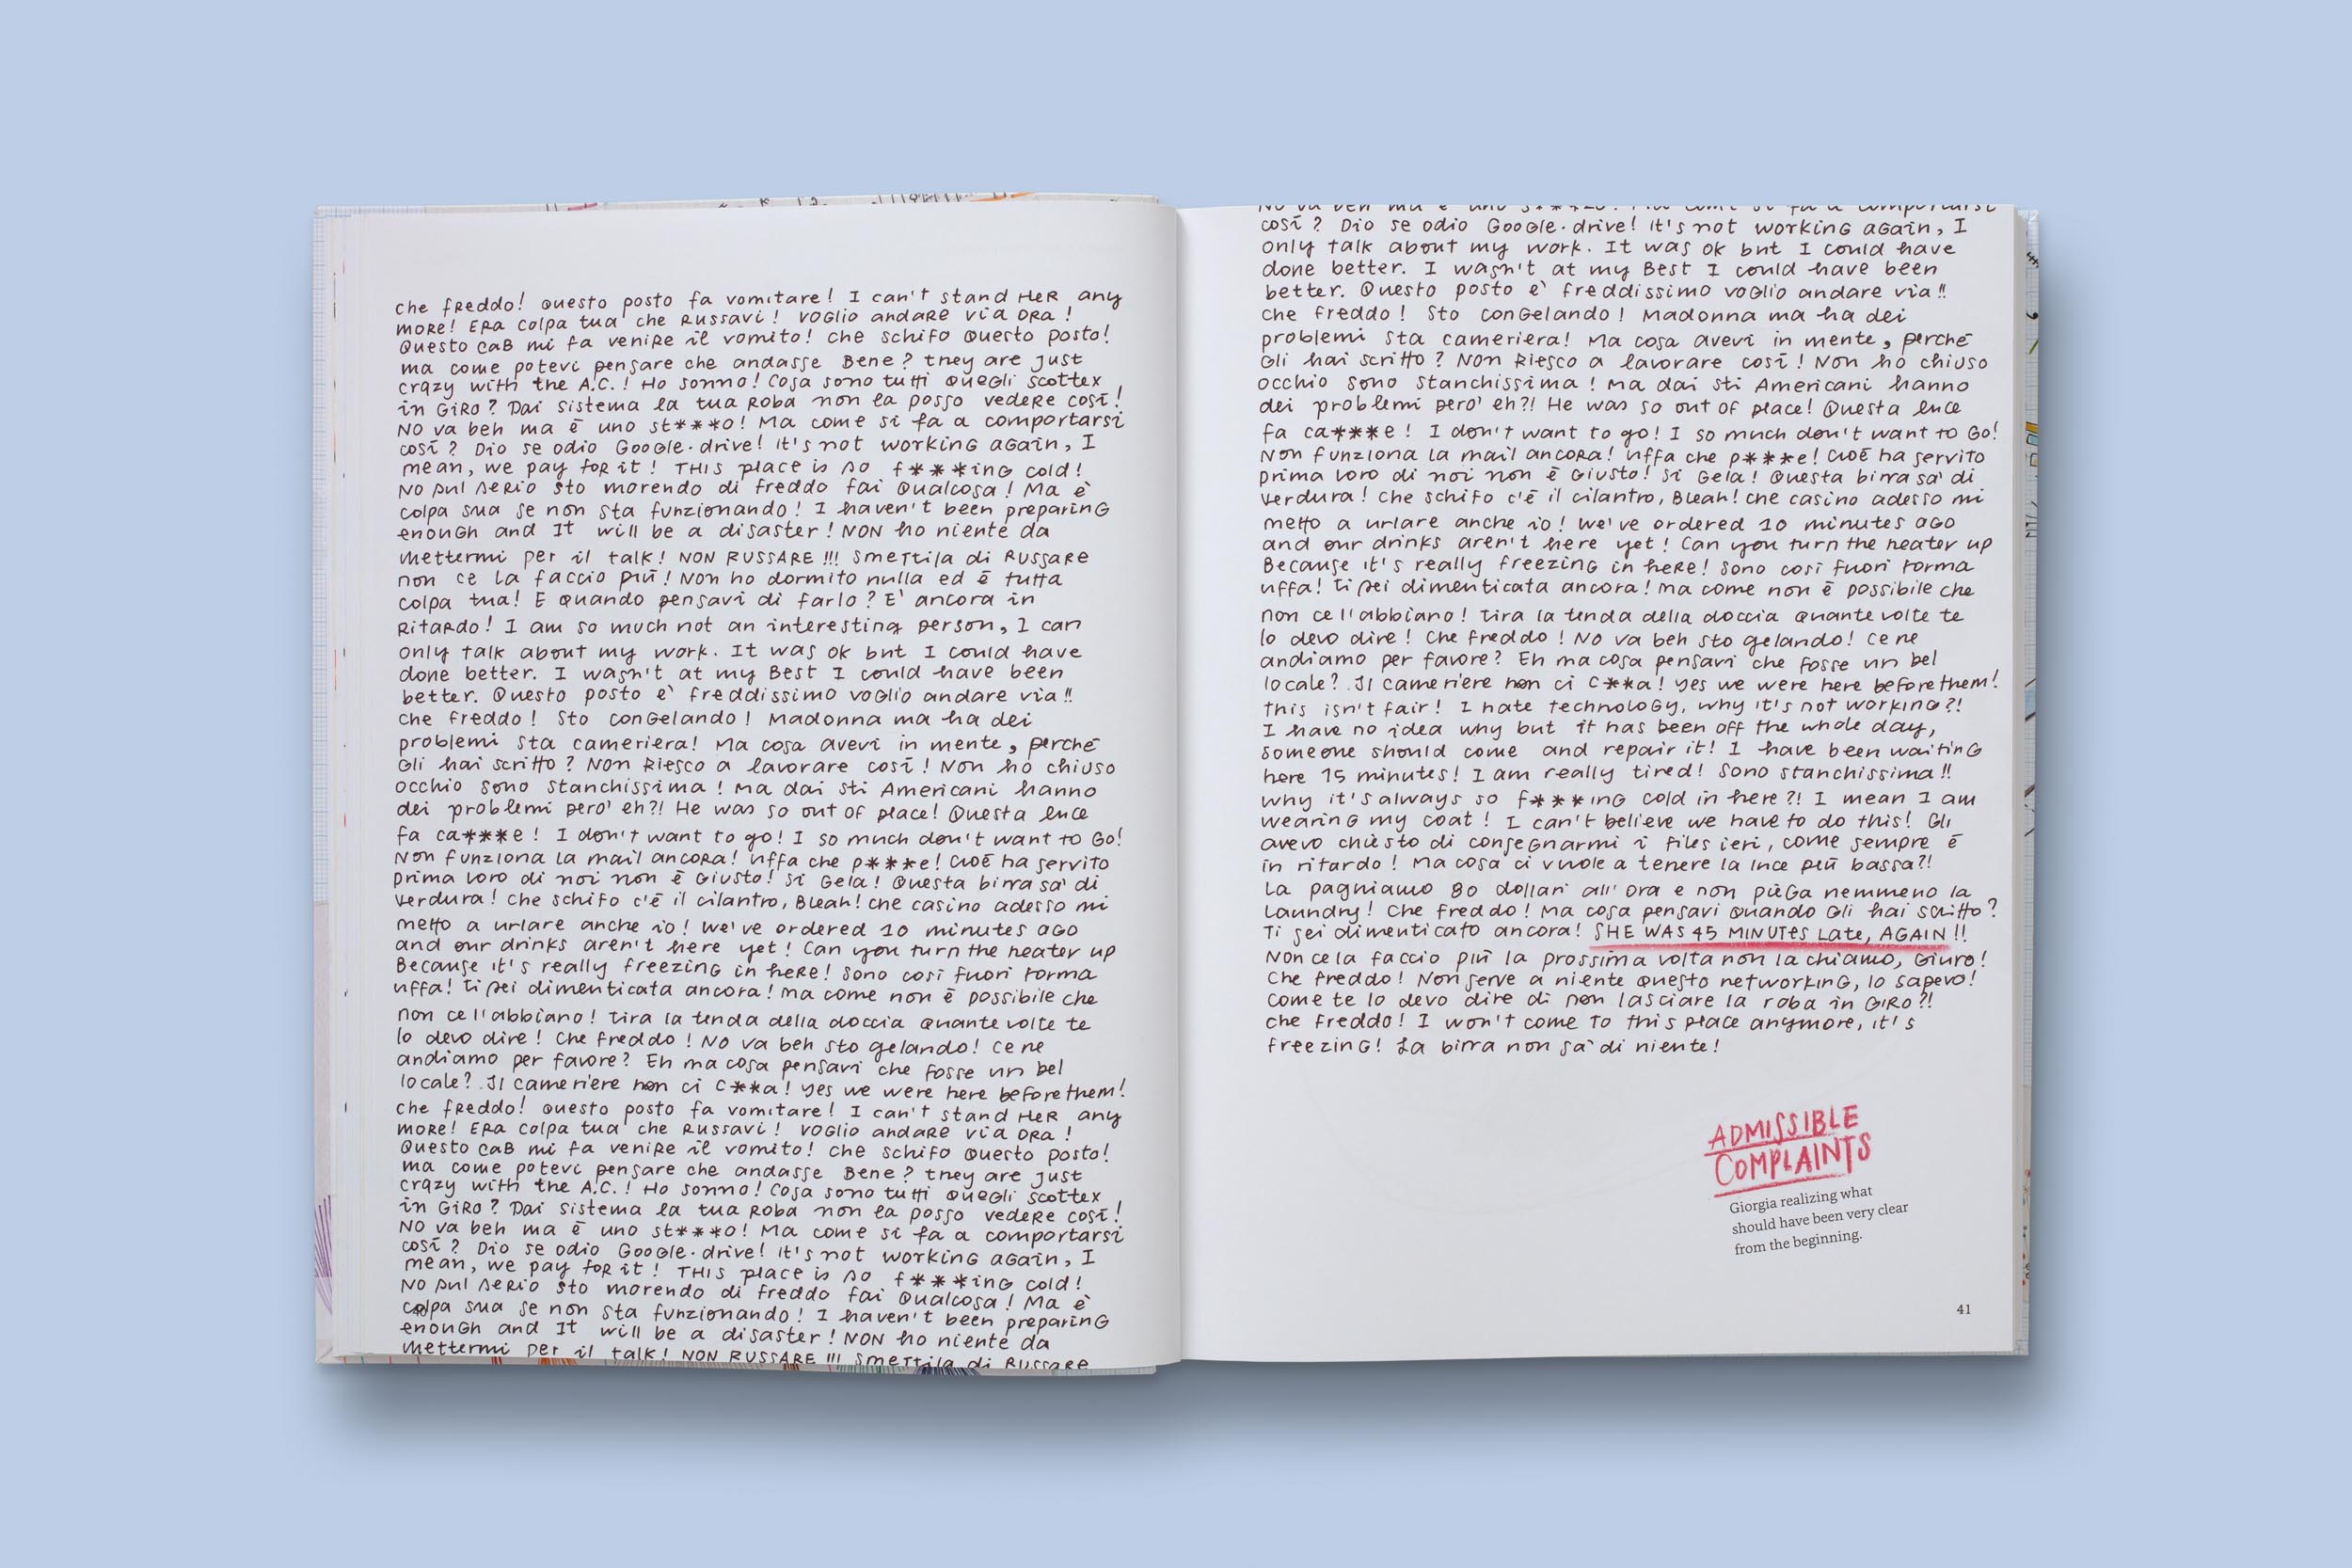 che freddo! questo posto fa vomitare! I can't stand HER any
more! Era colpa tua che russavi! voglio andare via ora!
Questo cab mi fa venire il vomito! che schifo questo posto!
ma come potevi pensare che andasse bene? they are just
crazy with the A.C.! Ho sonno! Cosa sono tutti quegli scottex
in giro? Dai sistema la tua roba non la posso vedere così!
No va beh ma è uno st***o! Ma come si fa a comportarsi
così? Dio se odio Google.drive! It's not working again, I
mean, we pay for it! THIS place is so f***ing cold!
No sul serio sto morendo di freddo fai qualcosa! Ma è
colpa sua se non sta funzionando! I haven't been preparing
enough and It will be a disaster! NON ho niente da
mettermi per il talk! NON RUSSARE!!! Smettila di russare
non ce la faccio più! Non ho dormito nulla ed è tutta
colpa tua! E quando pensavi di farlo? E' ancora in
ritardo! I am so much not an interesting person, I can
only talk about my work. It was ok but I could have
done better. I wasn't at my best I could have been
better. Questo posto e' freddissimo voglio andare via!!
che freddo! Sto congelando! Madonna ma ha dei
problemi sta cameriera! Ma cosa avevi in mente, perché
gli hai scritto? Non riesco a lavorare così! Non ho chiuso
occhio sono stanchissima! ma dai sti Americani hanno
dei problemi pero' eh?! He was so out of place! Questa luce
fa ca***e! I don't want to go! I so much don't want to Go!
Non funziona la mail ancora! uffa che p***e! Cioè ha servito
prima loro di noi non è giusto! Si Gela! Questa birra sa' di
verdura! che schifo c'è il cilantro, Bleah! che casino adesso mi
metto a urlare anche io! We've ordered 10 minutes ago
and our drinks aren't here yet! Can you turn the heater up
Because it's really freezing in here! Sono così fuori forma
uffa! ti sei dimenticata ancora! ma come non è possibile che
non ce l'abbiano! tira la tenda della doccia quante volte te
lo devo dire! Che freddo! No va beh sto gelando! ce ne
andiamo per favore? Eh ma cosa pensavi che fosse un bel
locale? Il cameriere non ci c**a! yes we were here before them!
che freddo! questo posto fa vomitare! I can't stand HER any
more! Era colpa tua che russavi! voglio andare via ora!
Questo cab mi fa venire il vomito! che schifo questo posto!
ma come potevi pensare che andasse bene? they are just
crazy with the A.C.! Ho sonno! Cosa sono tutti quegli scottex
in giro? Dai sistema la tua roba non la posso vedere così!
No va beh ma è uno st***o! Ma come si fa a comportarsi
così? Dio se odio Google.drive! It's not working again, I
mean, we pay for it! THIS place is so f***ing cold!
No sul serio sto morendo di freddo fai qualcosa! Ma è
colpa sua se non sta funzionando! I haven't been preparing
enough and It will be a disaster! NON ho niente da
mettermi per il talk! NON RUSSARE!!! Smettila di russare
40
No va beh ma è uno st***zo! Ma come si fa a comportarsi
così? Dio se odio Google.drive! It's not working again, I
only talk about my work. It was ok but I could have
done better. I wasn't at my best I could have been
better. Questo posto e' freddissimo voglio andare via!!
che freddo! Sto congelando! Madonna ma ha dei
problemi sta cameriera! Ma cosa avevi in mente, perché
gli hai scritto? Non riesco a lavorare così! Non ho chiuso
occhio sono stanchissima! ma dai sti Americani hanno
dei problemi pero' eh?! He was so out of place! Questa luce
fa ca***e! I don't want to go! I so much don't want to Go!
Non funziona la mail ancora! uffa che p***e! Cioè ha servito
prima loro di noi non è giusto! Si Gela! Questa birra sa' di
verdura! che schifo c'è il cilantro, Bleah! che casino adesso mi
metto a urlare anche io! We've ordered 10 minutes ago
and our drinks aren't here yet! Can you turn the heater up
Because it's really freezing in here! Sono così fuori forma
uffa! ti sei dimenticata ancora! ma come non è possibile che
non ce l'abbiano! tira la tenda della doccia quante volte te
lo devo dire! Che freddo! No va beh sto gelando! ce ne
andiamo per favore? Eh ma cosa pensavi che fosse un bel
locale? Il cameriere non ci c**a! yes we were here before them!
this isn't fair! I hate technology, why it's not working?!
I have no idea why but it has been off the whole day,
someone should come and repair it! I have been waiting
here 15 minutes! I am really tired! Sono stanchissima!!
why it's always so f***ing cold in here?! I mean I am
wearing my coat! I can't believe we have to do this! Gli
avevo chiesto di consegnarmi i files ieri, come sempre è
in ritardo! Ma cosa ci vuole a tenere la luce più bassa?!
La pagniamo 80 dollari all'ora e non piega nemmeno la
laundry! Che freddo! Ma cosa pensavi quando gli hai scritto?
Ti sei dimenticato ancora! SHE WAS 45 MINUTES Late, AGAIN!!
Non ce la faccio più la prossima volta non la chiamo, Giuro!
Che freddo! Non serve a niente questo networking, lo sapevo!
Come te lo devo dire di non lasciare la roba in giro?!
che freddo! I won't come to this place anymore, it's
freezing! La birra non sa' di niente!
ADMISSIBLE
COMPLAINTS
Giorgia realizing what
should have been very clear
from the beginning.
41